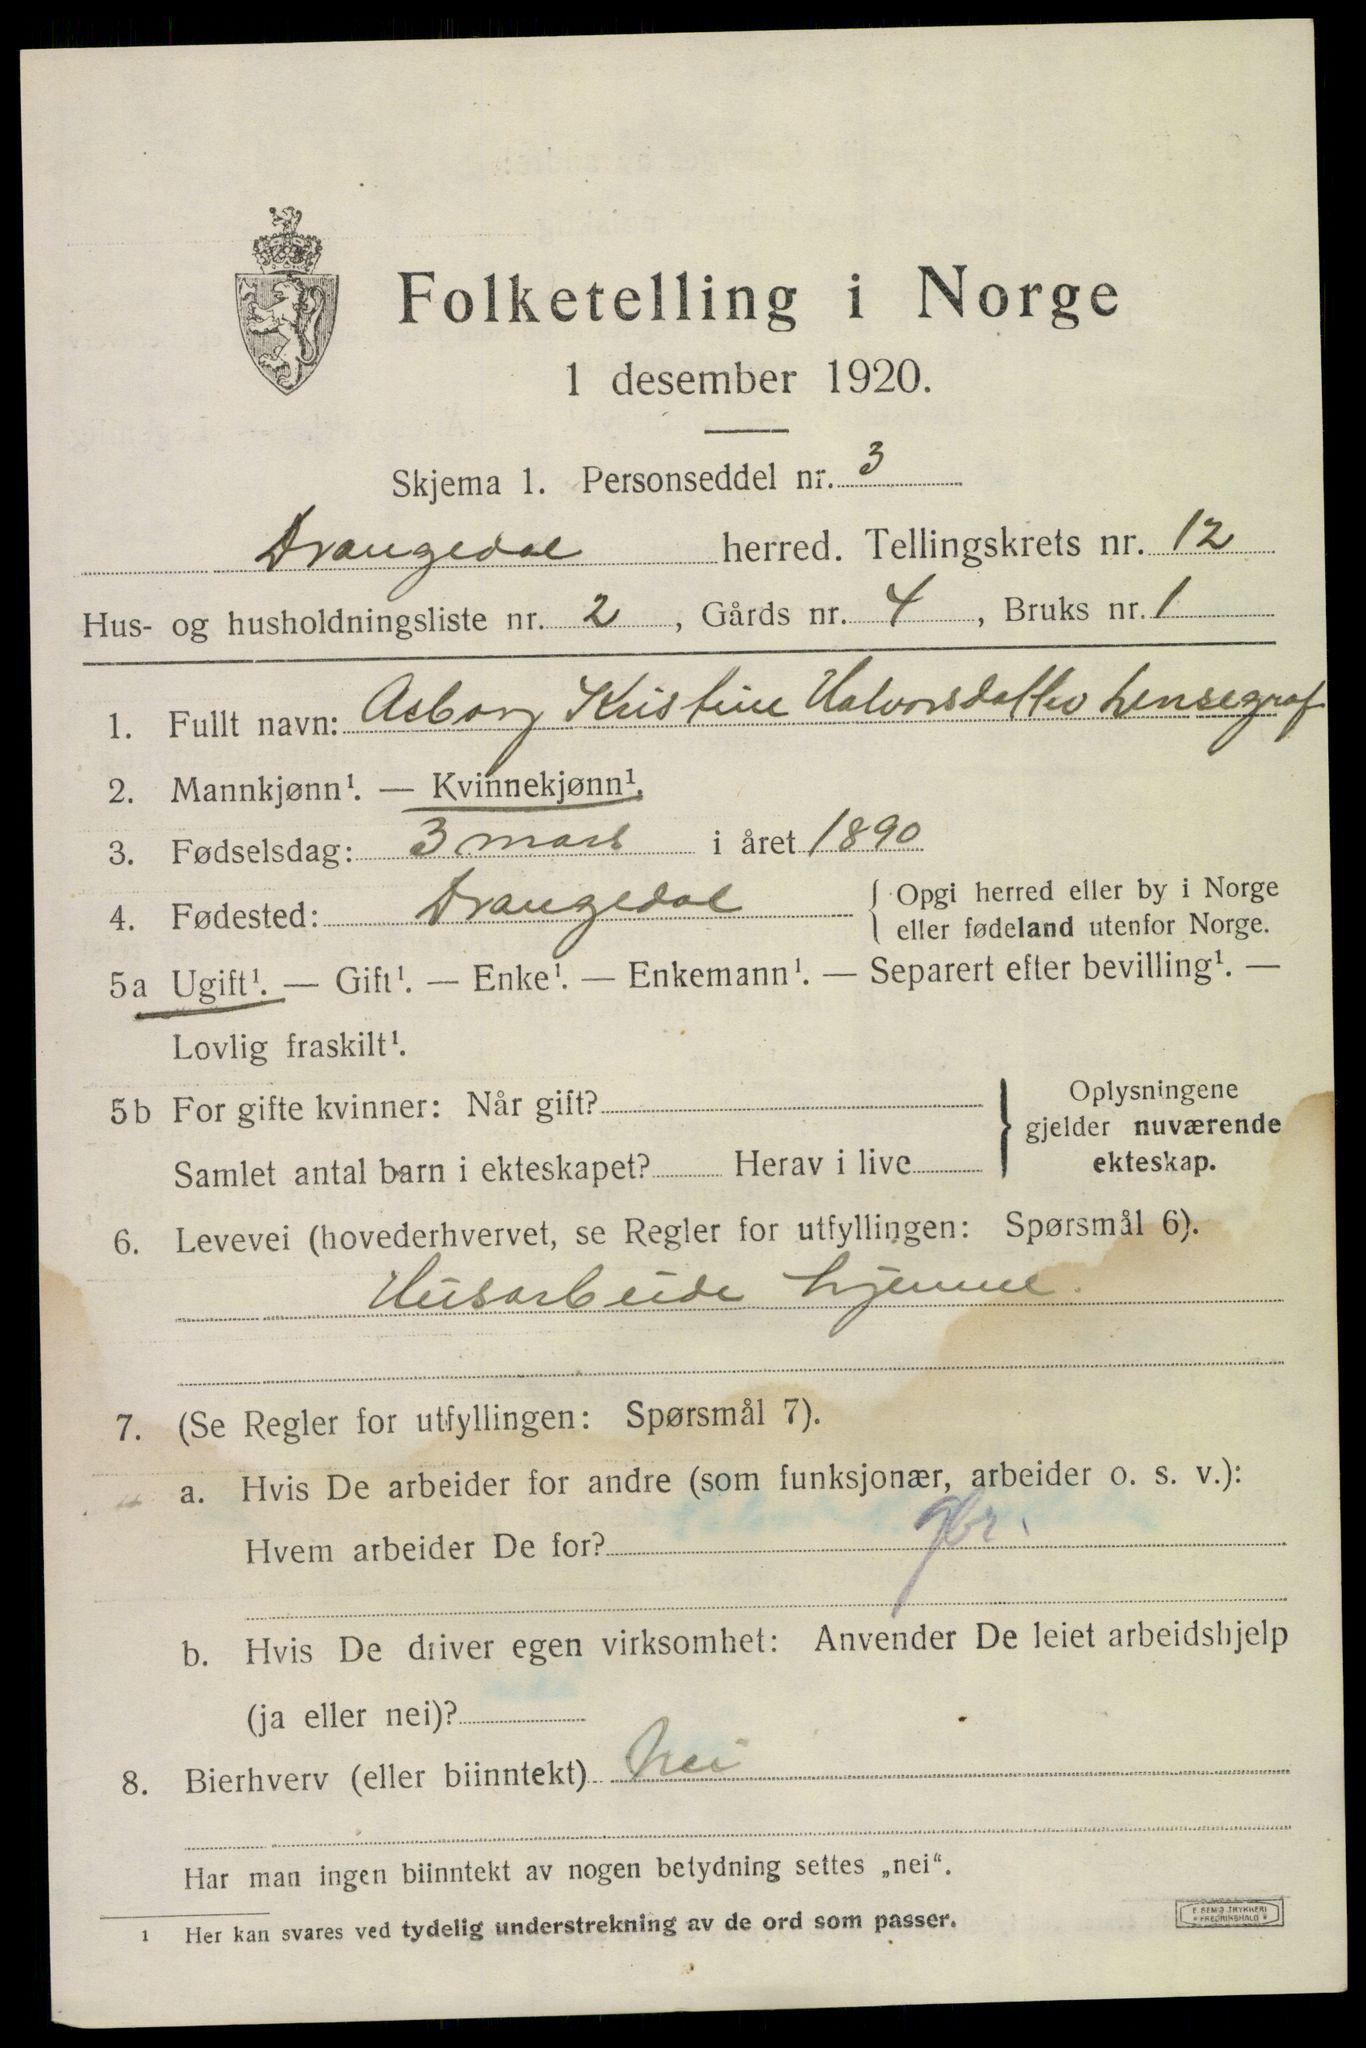 Folketelling i Norge
1 desember 1920.
Skjema 1. Personseddel nr. 3
Drangedal herred. Tellingskrets nr. 12
Hus- og husholdningsliste nr. 2, Gårds nr. 4, Bruks nr. 1
1. Fullt navn: Asborg Kristine Halvorsdatter
2. Mannkjønn¹. — Kvinnekjønn¹.
3. Fødselsdag: 3 mars i året 1890
4. Fødested: Drangedal { Opgi herred eller by i Norge
eller fødeland utenfor Norge.
5a Ugift¹. — Gift¹. — Enke¹. — Enkemann¹. — Separert efter bevilling¹. —
Lovlig fraskilt¹.
5b For gifte kvinner: Når gift?
Samlet antal barn i ekteskapet? Herav i live
} Oplysningene
gjelder nuværende
ekteskap.
6. Levevei (hovederhvervet, se Regler for utfyllingen: Spørsmål 6).
Husarbeide hjemme.
7. (Se Regler for utfyllingen: Spørsmål 7).
a. Hvis De arbeider for andre (som funksjonær, arbeider o. s. v.):
Hvem arbeider De for? gbr.
b. Hvis De driver egen virksomhet: Anvender De leiet arbeidshjelp
(ja eller nei)?
8. Bierhverv (eller biinntekt) Nei
Har man ingen biinntekt av nogen betydning settes „nei“.
¹ Her kan svares ved tydelig understrekning av de ord som passer.
E. SEM'S TRYKKERI
* FREDRIKSHALD *